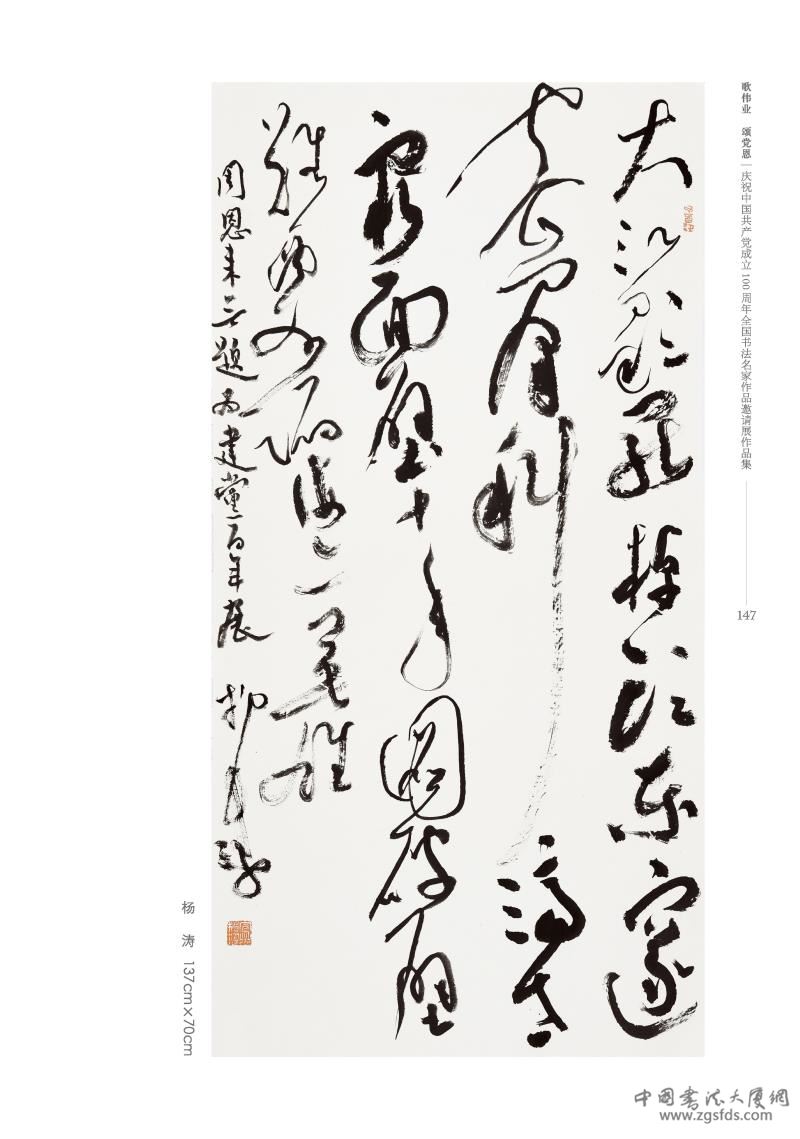 歌伟业 颂党恩 | 庆祝中国共产党成立100周年全国书法名家作品邀请展作品集
147
大江歌罷棹頭東邃
密群科濟世
窮面壁十年圖破壁
難酬蹈海亦英雄
周恩来无题为建黨百年展
杨涛 137cm×70cm
中国書法大厦網
www.zgsfds.com